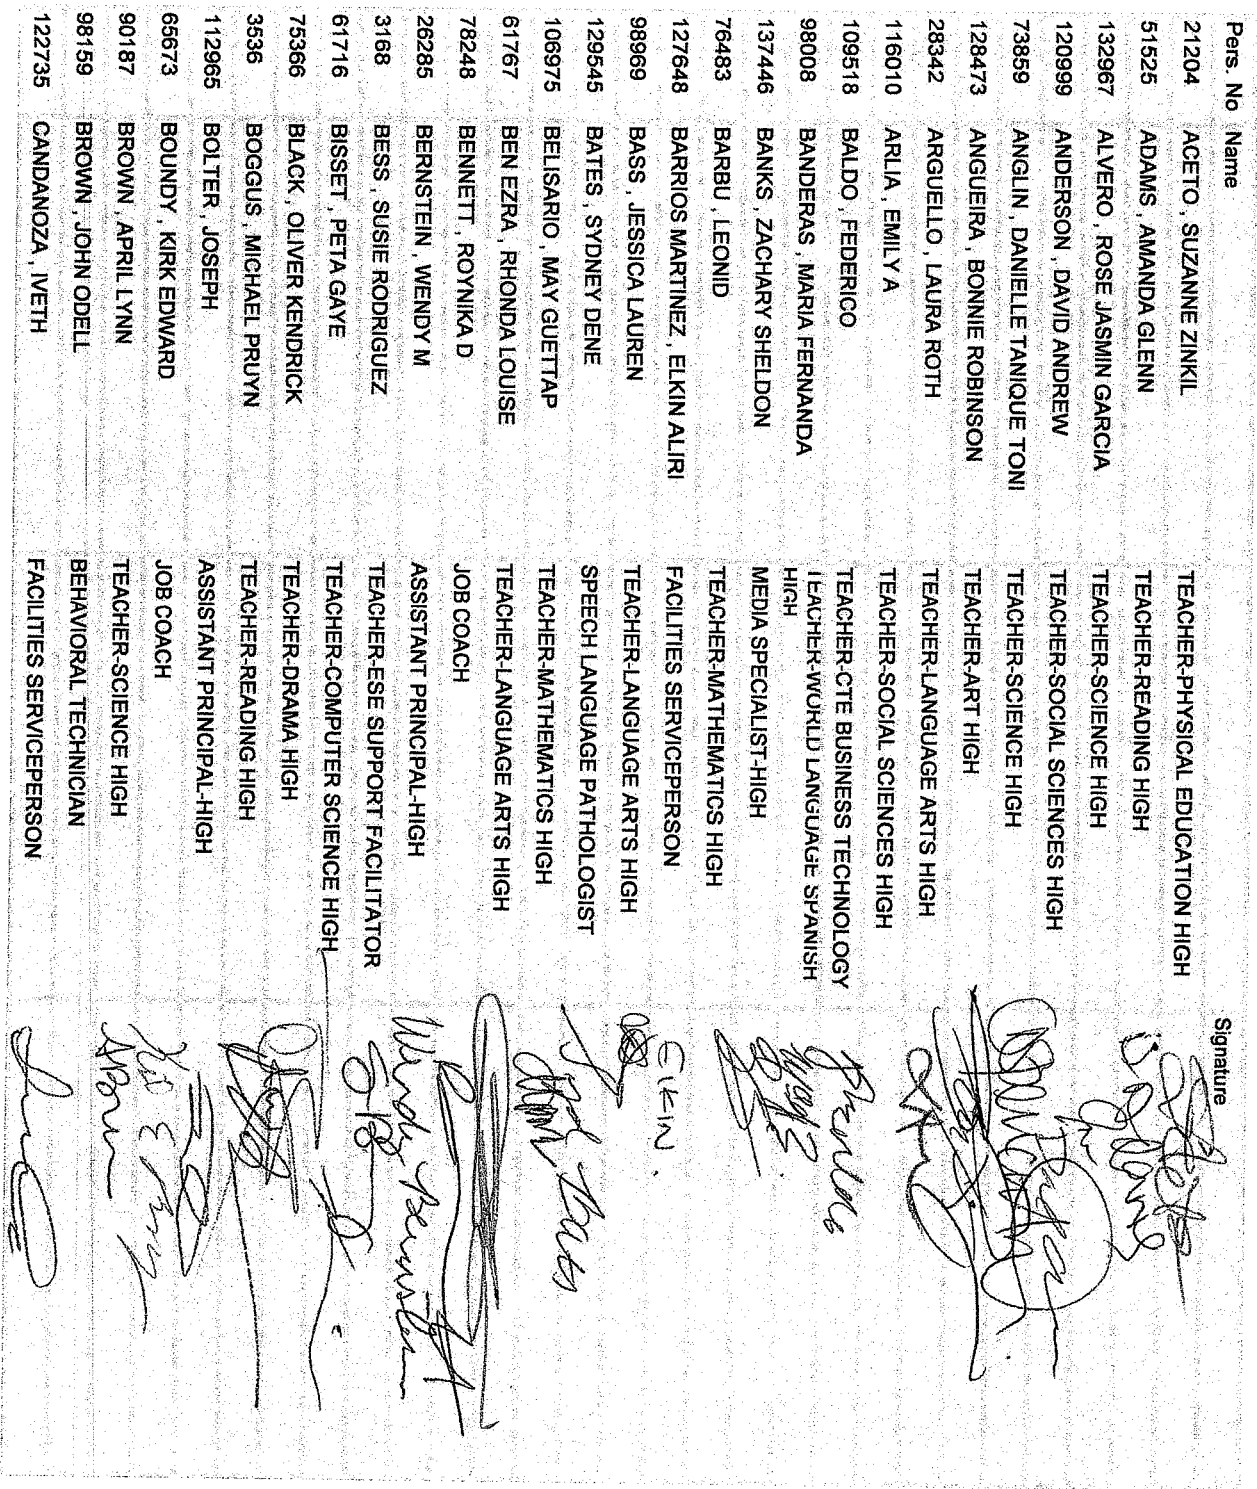 Pers. No Name Signature
21204 ACETO , SUZANNE ZINKIL TEACHER-PHYSICAL EDUCATION HIGH
51525 ADAMS , AMANDA GLENN TEACHER-READING HIGH
132967 ALVERO , ROSE JASMIN GARCIA TEACHER-SCIENCE HIGH
120999 ANDERSON , DAVID ANDREW TEACHER-SOCIAL SCIENCES HIGH
73859 ANGLIN , DANIELLE TANIQUE TONI TEACHER-SCIENCE HIGH
128473 ANGUEIRA , BONNIE ROBINSON TEACHER-ART HIGH
28342 ARGUELLO , LAURA ROTH TEACHER-LANGUAGE ARTS HIGH
116010 ARLIA , EMILY A TEACHER-SOCIAL SCIENCES HIGH
109518 BALDO , FEDERICO TEACHER-CTE BUSINESS TECHNOLOGY
98008 BANDERAS , MARIA FERNANDA TEACHER-WORLD LANGUAGE SPANISH HIGH
137446 BANKS , ZACHARY SHELDON MEDIA SPECIALIST-HIGH
76483 BARBU , LEONID TEACHER-MATHEMATICS HIGH
127648 BARRIOS MARTINEZ , ELKIN ALIRI FACILITIES SERVICEPERSON ElKIN.
98969 BASS , JESSICA LAUREN TEACHER-LANGUAGE ARTS HIGH
129545 BATES , SYDNEY DENE SPEECH LANGUAGE PATHOLOGIST
106975 BELISARIO , MAY GUETTAP TEACHER-MATHEMATICS HIGH
61767 BEN EZRA , RHONDA LOUISE TEACHER-LANGUAGE ARTS HIGH
78248 BENNETT , ROYNIKA D JOB COACH
26285 BERNSTEIN , WENDY M ASSISTANT PRINCIPAL-HIGH Wendy Bernstein
3168 BESS , SUSIE RODRIGUEZ TEACHER-ESE SUPPORT FACILITATOR
61716 BISSET , PETA GAYE TEACHER-COMPUTER SCIENCE HIGH
75366 BLACK , OLIVER KENDRICK TEACHER-DRAMA HIGH
3536 BOGGUS , MICHAEL PRUYN TEACHER-READING HIGH
112965 BOLTER , JOSEPH ASSISTANT PRINCIPAL-HIGH
65673 BOUNDY , KIRK EDWARD JOB COACH
90187 BROWN , APRIL LYNN TEACHER-SCIENCE HIGH
98159 BROWN , JOHN ODELL BEHAVIORAL TECHNICIAN
122735 CANDANOZA , IVETH FACILITIES SERVICEPERSON